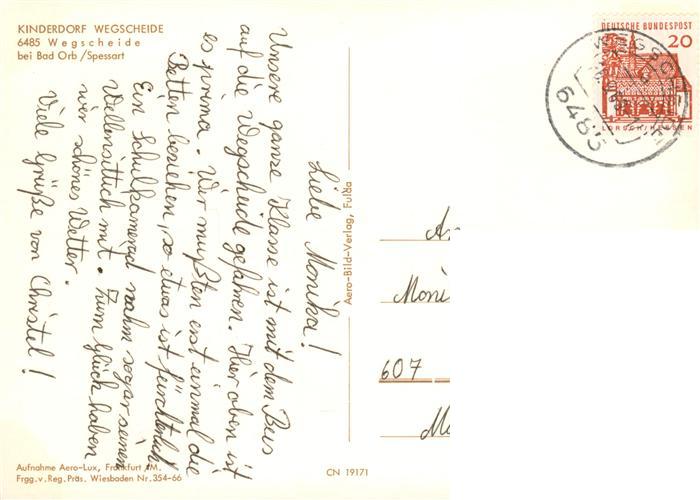 KINDERDORF WEGSCHEIDE
6485 Wegscheide
bei Bad Orb/Spessart
Liebe Monika!
Unsere ganze Klasse ist mit dem Bus
auf die Wegscheide gefahren. Hier oben ist
es prima. Wir mußten erst einmal die
Betten beziehen, so etwas ist fürchterlich
Ein Schulkamerad nahm sogar seinen
Wellensittich mit. Zum Glück haben
wir schönes Wetter.
Viele Grüße von Christel!
Aufnahme Aero-Lux, Frankfurt/M.
Frgg.v.Reg.Präs. Wiesbaden Nr.354-66
Aero-Bild-Verlag, Fulda
CN 19171
DEUTSCHE BUNDESPOST
20
LORSCH/HESSEN
6485
Moni
607